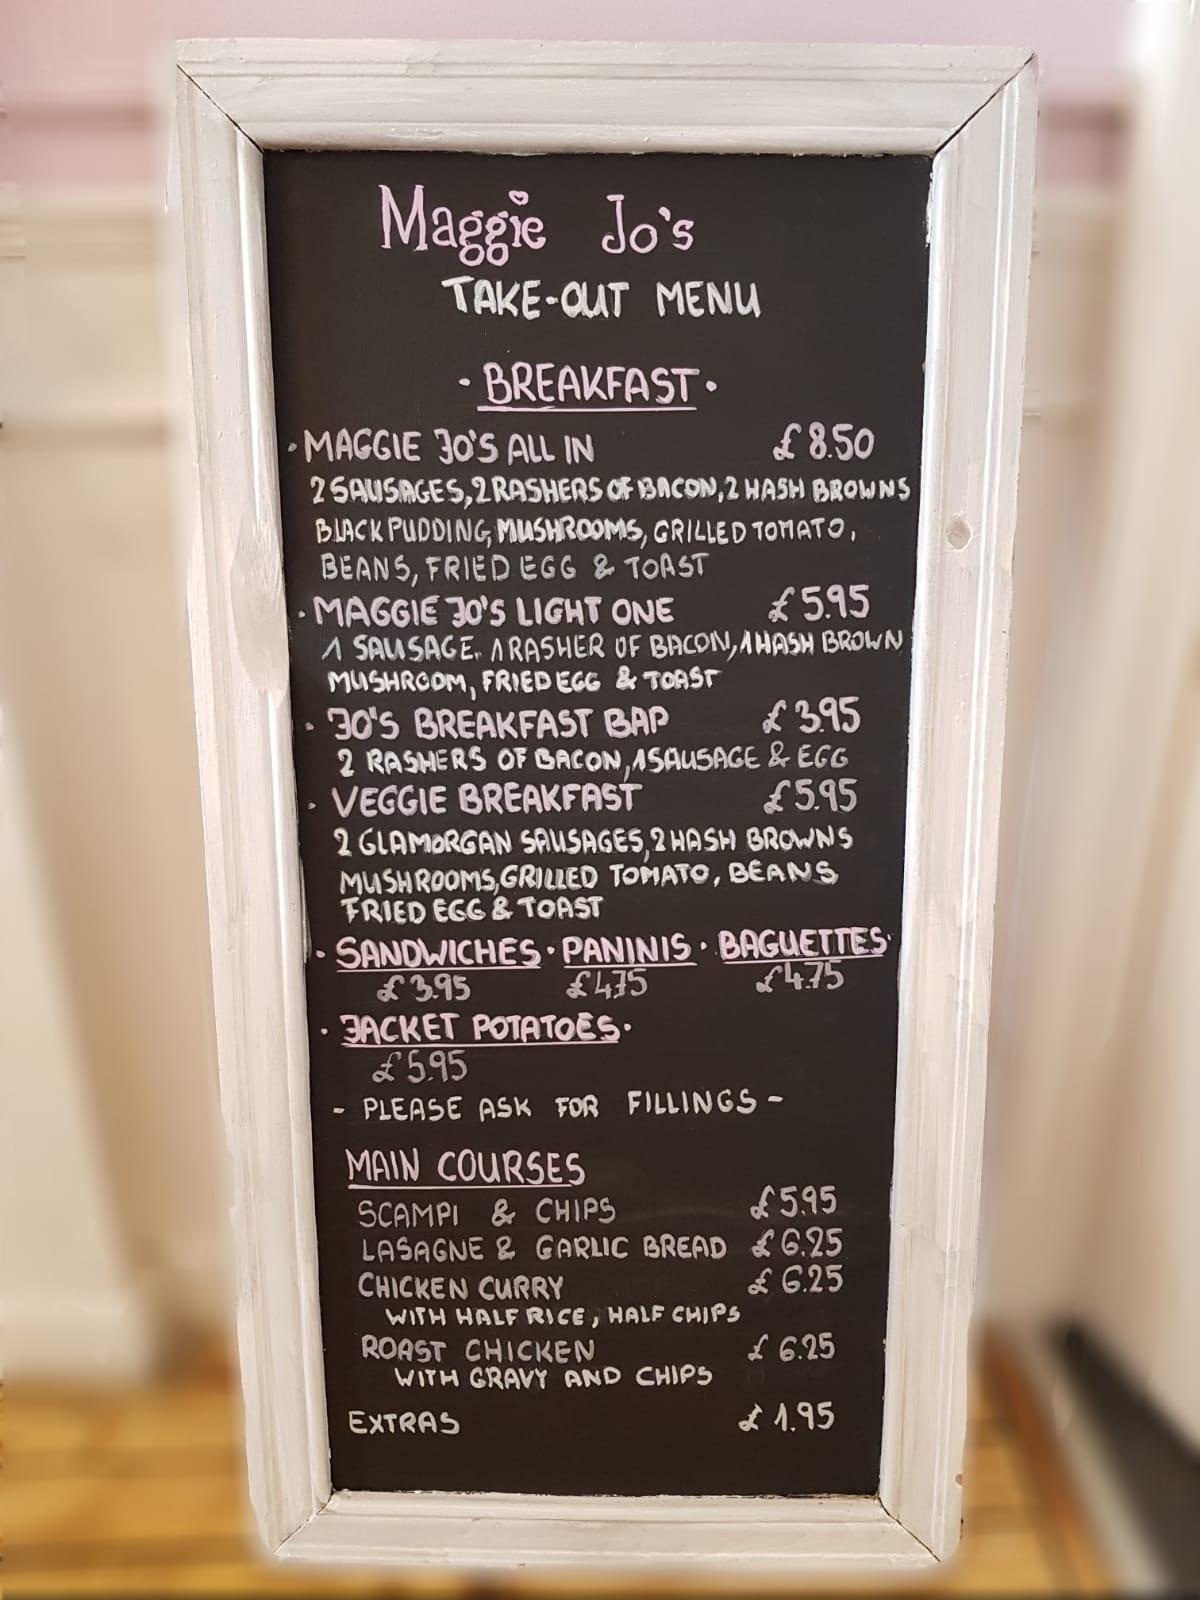 Maggie Jo's
TAKE-OUT MENU
· BREAKFAST ·
· MAGGIE JO'S ALL IN £8.50
2 SAUSAGES, 2 RASHERS OF BACON, 2 HASH BROWNS
BLACK PUDDING, MUSHROOMS, GRILLED TOMATO,
BEANS, FRIED EGG & TOAST
· MAGGIE JO'S LIGHT ONE £5.95
1 SAUSAGE, 1 RASHER OF BACON, 1 HASH BROWN
MUSHROOM, FRIED EGG & TOAST
· JO'S BREAKFAST BAP £3.95
2 RASHERS OF BACON, 1 SAUSAGE & EGG
· VEGGIE BREAKFAST £5.95
2 GLAMORGAN SAUSAGES, 2 HASH BROWNS
MUSHROOMS, GRILLED TOMATO, BEANS
FRIED EGG & TOAST
· SANDWICHES · PANINIS · BAGUETTES ·
£3.95 £4.75 £4.75
· JACKET POTATOES ·
£5.95
- PLEASE ASK FOR FILLINGS -
MAIN COURSES
SCAMPI & CHIPS £5.95
LASAGNE & GARLIC BREAD £6.25
CHICKEN CURRY £6.25
WITH HALF RICE, HALF CHIPS
ROAST CHICKEN £6.25
WITH GRAVY AND CHIPS
EXTRAS £1.95